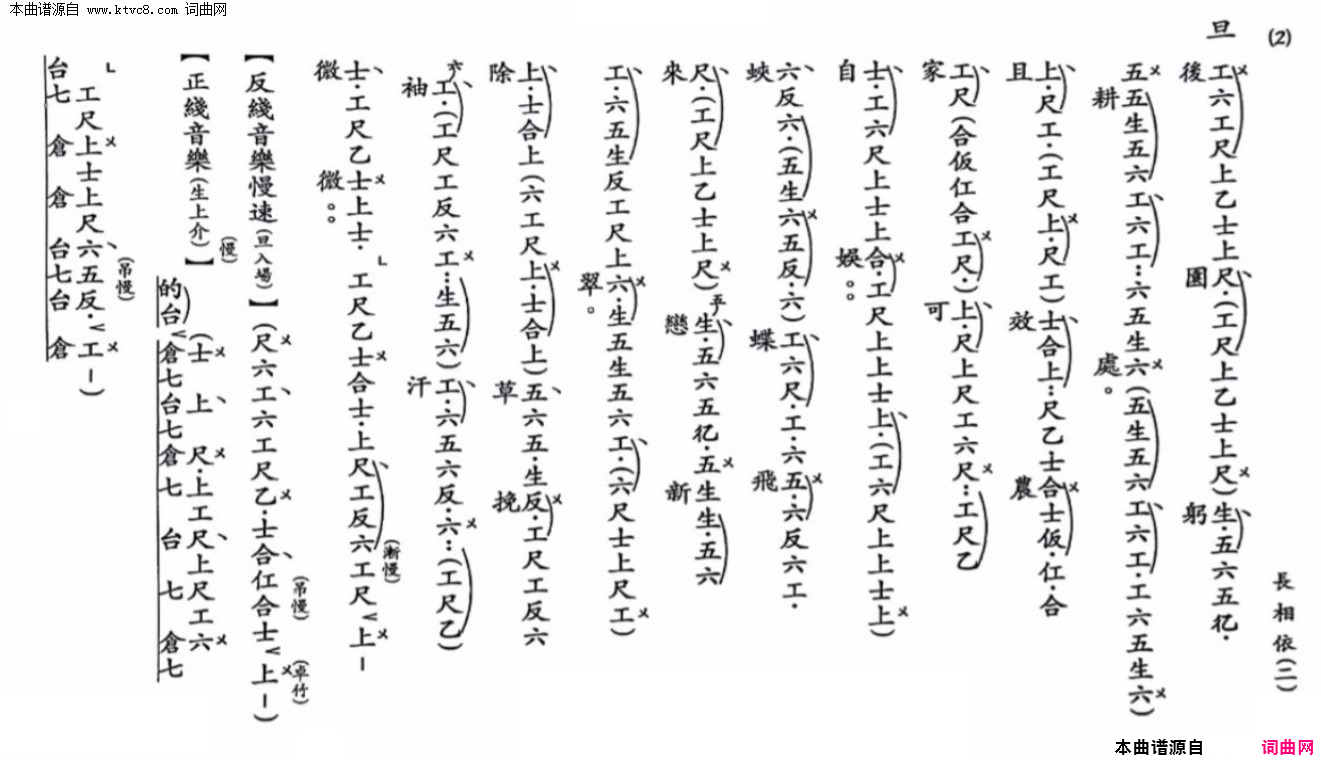 本曲谱源自 www.ktvc8.com 词曲网
(2)
長相依(二)
旦
後 園 躬
工六工尺上乙士上尺·(工尺上乙士上尺)生·五六五仜·
耕 處。
五五生五六工六工：六五生六(五生五六工六工·工六五生六)
且 效 農
上·尺工·(工尺上·尺工)士合上：尺乙士合士仮·仁·合
家 可
工尺(合仮仁合工尺·)上·尺上尺工六尺：工尺乙
自 娛。。
士·工六尺上士上合·工尺上上士上·(工六尺上上士上)
蛺 蝶 飛
六反六·(五生六五反·六)工六尺·工·六五·六反六工·
來 戀 新
尺·(工尺上乙士上尺)生·五六五仜·五生生·五六
翠。
工·六五生反工尺上六·生五生五六工·(六尺士上尺工)
除 草 挽
上·士合上(六工尺上·士合上)五六五·生反·工尺工反六
袖 汗
工·(工尺工反六工：生五六)工·六五六反·六：(工尺乙)
微 微。。
士·工尺乙士上士·工尺乙士合士·上尺工反六工尺上—
(漸慢)
【反綫音樂慢速(旦入場)】(尺六工六工尺乙·士合仁合士上—)
(吊慢) (卓竹)
【正綫音樂(生上介)】
(慢)
的台
(士上尺·上工尺上尺工六
倉七台七倉七台七倉七
工尺上士上尺六五反·工—)
(吊慢)
台七倉倉台七台倉
本曲谱源自 词曲网